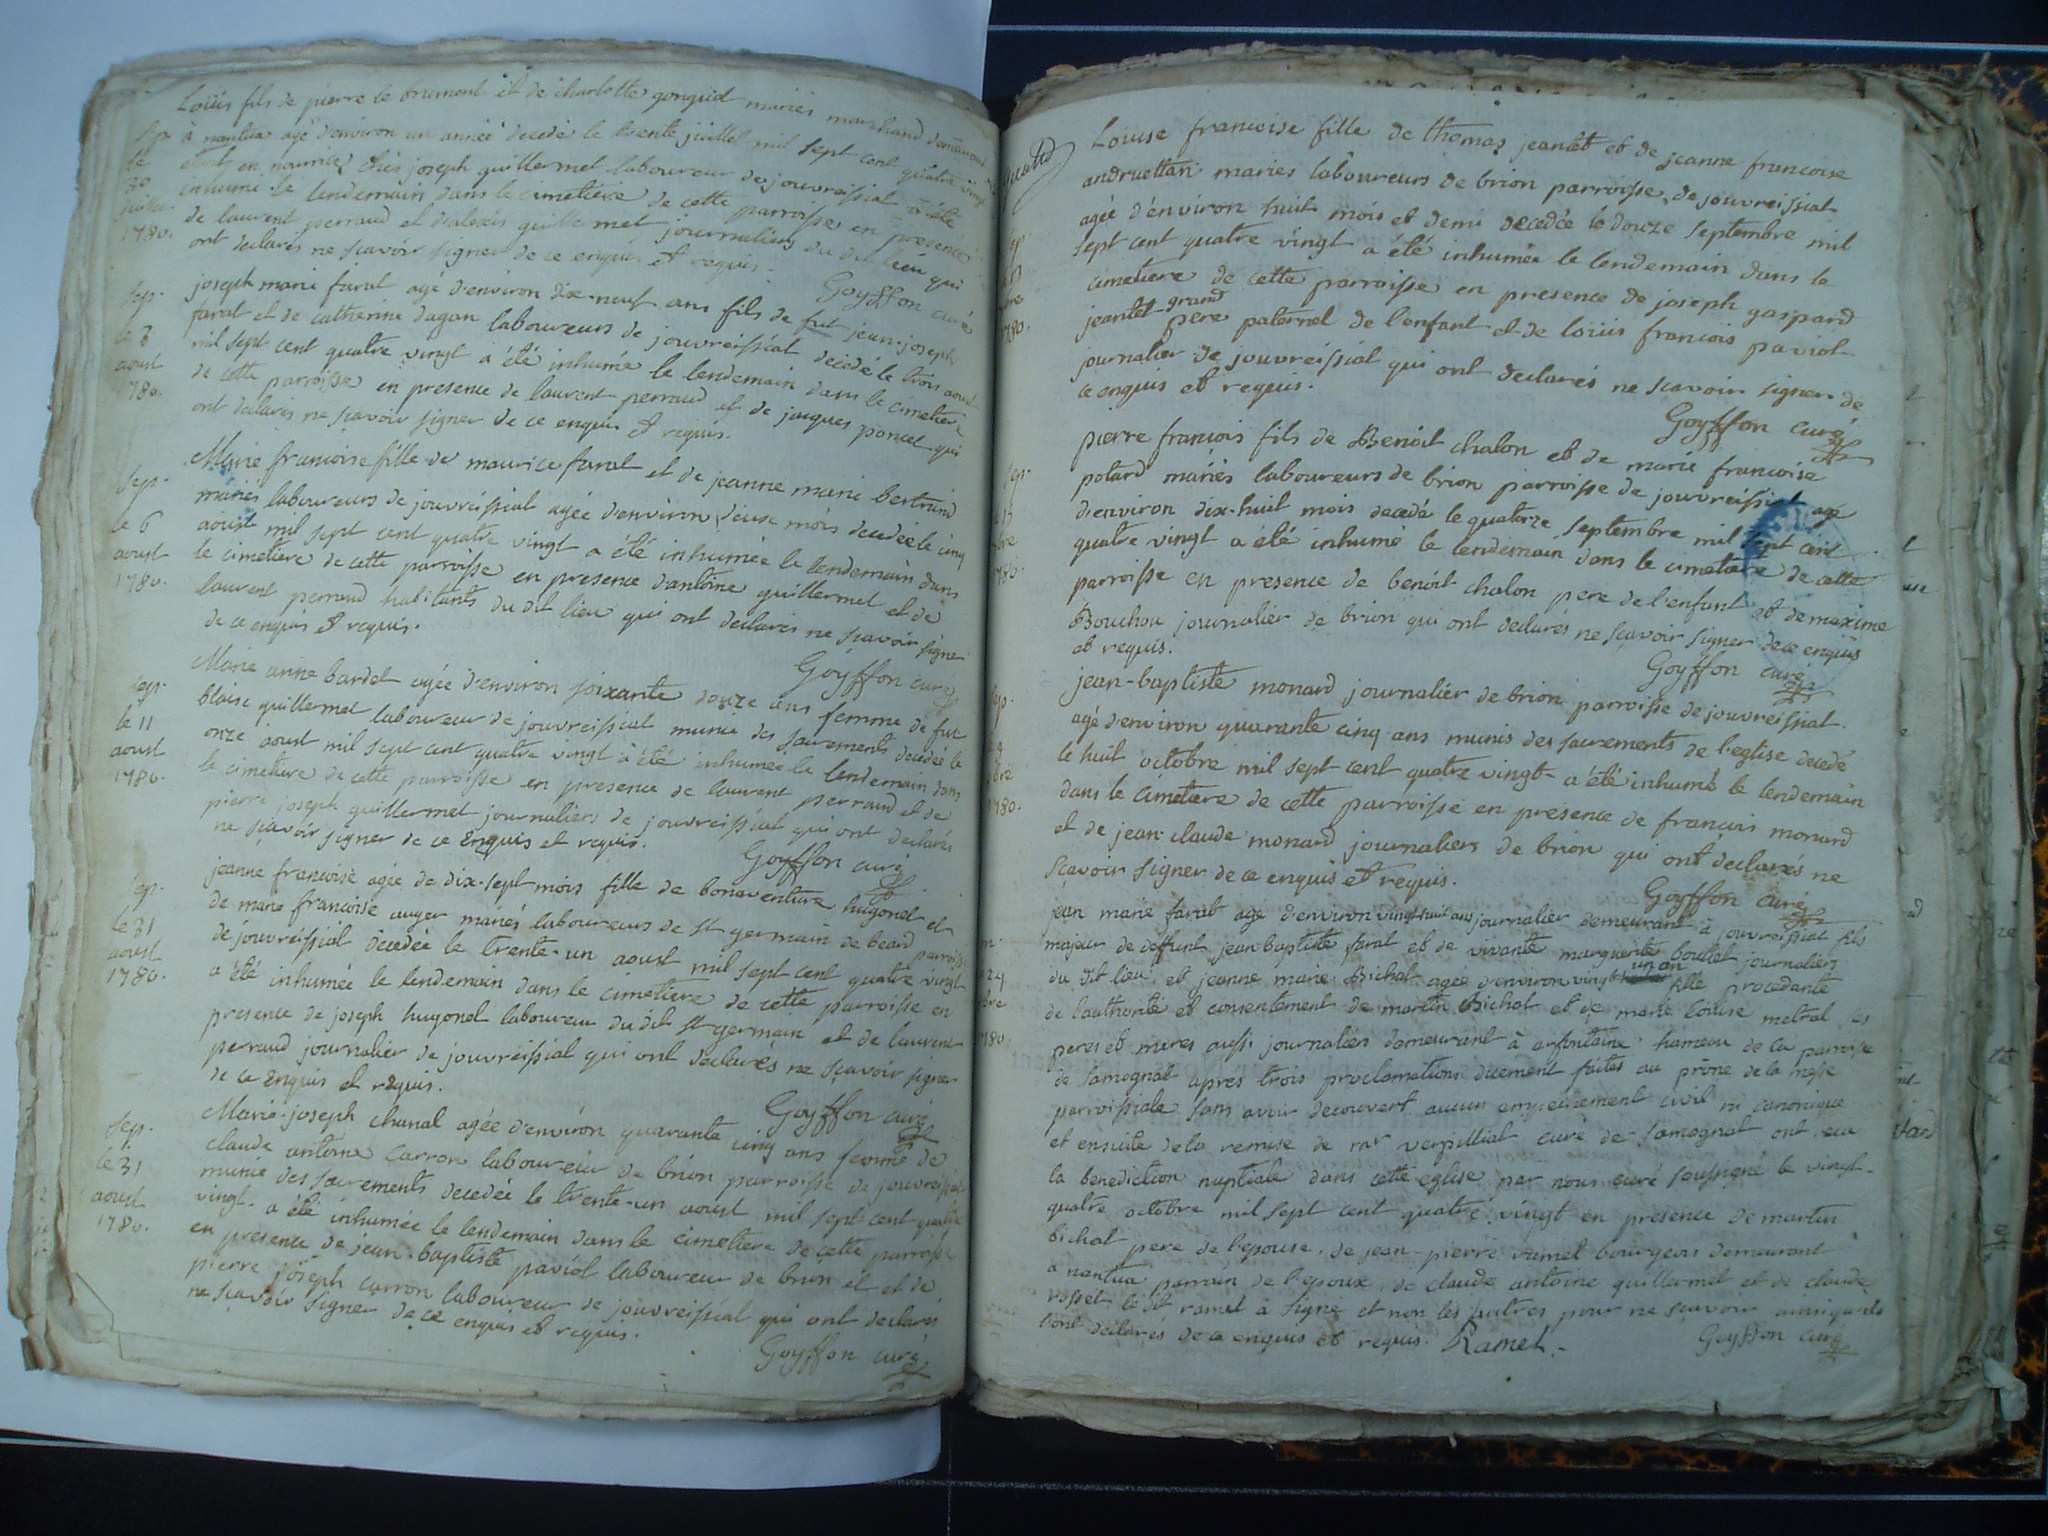 Loüis fils de pierre le brument et de charlotte gonguet mariés marchand demeurant
à nantua agé d'environ un année decedé le trente juillet mil sept cent quatre vingt
étant en nourrice chés joseph guillermet laboureur de jouvreissiat a été
inhumé le lendemain dans le cimetiere de cette parroisse en presence
de laurent perraud et d'alexis guillermet journaliers du dit lieu qui
ont declarés ne scavoir signer de ce enquis et requis.
Goyffon curé
Sep.
le
30
juillet
1780.
joseph marie farat agé d'environ dix-neuf ans fils de fut jean-joseph
farat et de catherine dagan laboureurs de jouvreissiat decedé le trois aoust
mil sept cent quatre vingt a été inhumé le lendemain dans le cimetiere
de cette parroisse en presence de laurent perraud et de jacques poncet qui
ont declarés ne scavoir signer de ce enquis et requis.
Sep.
le 3
aoust
1780.
Marie francoise fille de maurice farat et de jeanne marie bertrand
mariés laboureurs de jouvreissiat agée d'environ deuse mois decedée le cinq
aoust mil sept cent quatre vingt a été inhumée le lendemain dans
le cimetiere de cette parroisse en presence d'antoine guillermet et de
laurent perraud habitants du dit lieu qui ont declarés ne scavoir signer
de ce enquis et requis.
Goyffon curé
Sep.
le 6
aoust
1780.
Marie anne bardet agée d'environ soixante douze ans femme de fut
blaise guillermet laboureur de jouvreissiat munie des sacrements decedée le
onze aoust mil sept cent quatre vingt à été inhumée le lendemain dans
le cimetiere de cette parroisse en presence de laurent perraud et de
pierre joseph guillermet journaliers de jouvreissiat qui ont declarés
ne scavoir signer de ce enquis et requis.
Goyffon curé
Sep.
le 11
aoust
1780.
jeanne francoise agée de dix-sept mois fille de bonaventure hugonet et
de marie francoise auger mariés laboureurs de st germain de beard parroisse
de jouvreissiat decedée le trente-un aoust mil sept cent quatre vingt
a été inhumée le lendemain dans le cimetiere de cette parroisse en
presence de joseph hugonet laboureur du dit st germain et de laurent
perraud journalier de jouvreissiat qui ont declarés ne scavoir signer
de ce enquis et requis.
Goyffon curé
Sep.
le 31
aoust
1780.
Marie-joseph chanal agée d'environ quarante cinq ans femme de
claude antoine carron laboureur de brion parroisse de jouvreissiat
munie des sacrements decedée le trente-un aoust mil sept cent quatre
vingt a été inhumée le lendemain dans le cimetiere de cette parroisse
en presence de jean-baptiste paviot laboureur de brion et et de
pierre joseph carron laboureur de jouvreissiat qui ont declarés
ne scavoir signer de ce enquis et requis.
Goyffon curé
Sep.
le 31
aoust
1780.
Loüise francoise fille de thomas jeantet et de jeanne francoise
andruettan mariés laboureurs de brion parroisse de jouvreissiat
agée d'environ huit mois et demi decedée le douze septembre mil
sept cent quatre vingt a été inhumée le lendemain dans le
cimetiere de cette parroisse en presence de joseph gaspard
jeantet grand pere paternel de l'enfant et de loüis francois paviot
journalier de jouvreissiat qui ont declarés ne scavoir signer de
ce enquis et requis.
Goyffon curé
1780.
pierre francois fils de Benoit chalon et de marie francoise
potard mariés laboureurs de brion parroisse de jouvreissiat agé
d'environ dix-huit mois decedé le quatorze septembre mil sept cent
quatre vingt a été inhumé le lendemain dans le cimetiere de cette
parroisse en presence de benoit chalon pere de l'enfant et de maxime
Bouchou journalier de brion qui ont declarés ne scavoir signer de ce enquis
et requis.
Goyffon curé
1780.
jean-baptiste monard journalier de brion parroisse de jouvreissiat
agé d'environ quarante cinq ans munis des sacrements de l'eglise decedé
le huit octobre mil sept cent quatre vingt a été inhumé le lendemain
dans le cimetiere de cette parroisse en presence de francois monard
et de jean claude monard journaliers de brion qui ont declarés ne
scavoir signer de ce enquis et requis.
Goyffon curé
1780.
jean marie farat agé d'environ vingt huit ans journalier demeurant à jouvreissiat fils
majeur de deffunt jean baptiste farat et de vivante marguerite boutlet journaliers
du dit lieu et jeanne marie Bichat agée d'environ vingt un an fille procedante
de l'authorité et consentement de martin Bichat et de marie loüise metral ses
peres et meres aussi journaliers demeurant à anfontaine hameau de la parroisse
de Samognat apres trois proclamations duement faites au prône de la messe
parroissiale sans avoir decouvert aucun empechement civil ni canonique
et ensuite de la remise de mr verpilliat curé de Samognat ont eu
la benediction nuptiale dans cette eglise par nous curé soussigné le vingt-
quatre octobre mil sept cent quatre vingt en presence de martin
bichat pere de l'epouse, de jean-pierre ramel bourgeois demeurant
a nantua parrain de l'epoux, de claude antoine guillermet et de claude
rosset le dit ramel à signé et non les autres pour ne scavoir ainsi qu'ils
l'ont declarés de ce enquis et requis. Ramel.
Goyffon curé
1780.